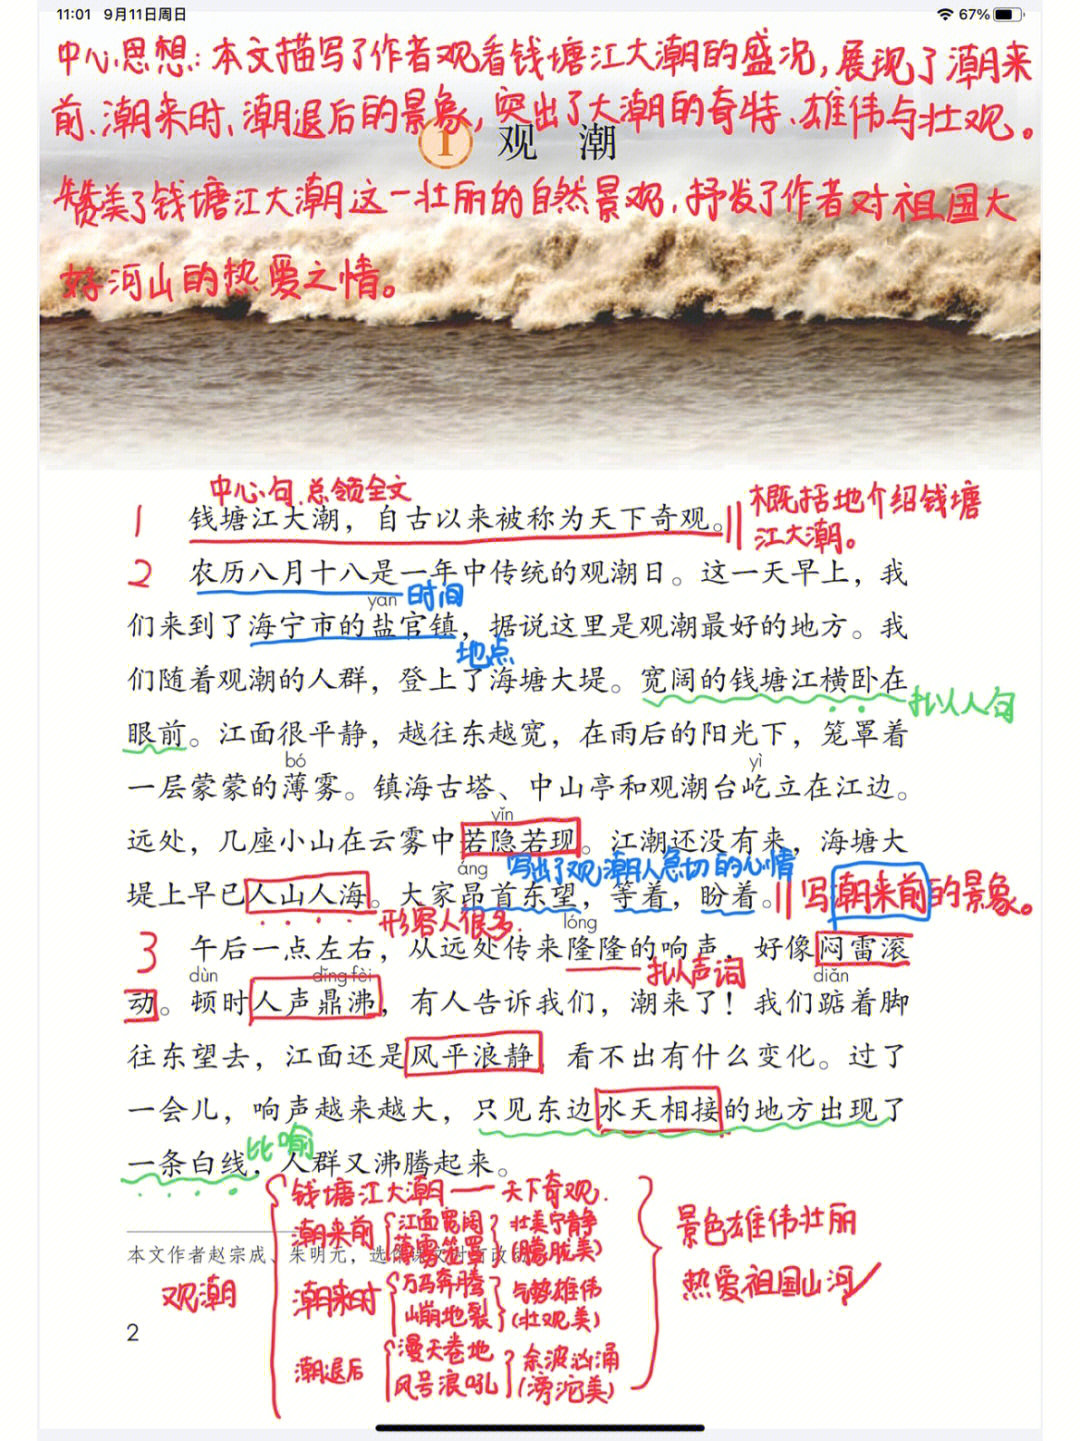 11:01 9月11日周日
67%
中心思想:本文描写了作者观看钱塘江大潮的盛况,展现了潮来
前、潮来时、潮退后的景象,突出了大潮的奇特、雄伟与壮观。
1 观 潮
赞美了钱塘江大潮这一壮丽的自然景观,抒发了作者对祖国大
好河山的热爱之情。
中心句.总领全文
1 钱塘江大潮，自古以来被称为天下奇观。
概括地介绍钱塘
江大潮。
2 农历八月十八是一年中传统的观潮日。这一天早上，我
yán 时间
们来到了海宁市的盐官镇，据说这里是观潮最好的地方。我
地点
们随着观潮的人群，登上了海塘大堤。宽阔的钱塘江横卧在
拟人句
眼前。江面很平静，越往东越宽，在雨后的阳光下，笼罩着
bó yì
一层蒙蒙的薄雾。镇海古塔、中山亭和观潮台屹立在江边。
yǐn
远处，几座小山在云雾中若隐若现。江潮还没有来，海塘大
áng 写出了观潮人急切的心情
堤上早已人山人海。大家昂首东望，等着，盼着。
写潮来前的景象。
形容人很多. lóng
3 午后一点左右，从远处传来隆隆的响声，好像闷雷滚
dùn dǐng fèi 拟声词 diǎn
动。顿时人声鼎沸，有人告诉我们，潮来了！我们踮着脚
往东望去，江面还是风平浪静 看不出有什么变化。过了
一会儿，响声越来越大，只见东边水天相接的地方出现了
比喻
一条白线，人群又沸腾起来。
钱塘江大潮——天下奇观.
潮来前 江面宽阔 壮美宁静
薄雾笼罩 (朦胧美)
景色雄伟壮丽
本文作者赵宗成、朱明元，选
观潮
潮来时 万马奔腾 气势雄伟
山崩地裂 (壮观美)
热爱祖国山河
2
潮退后 漫天卷地 余波汹涌
风号浪吼 (滂沱美)